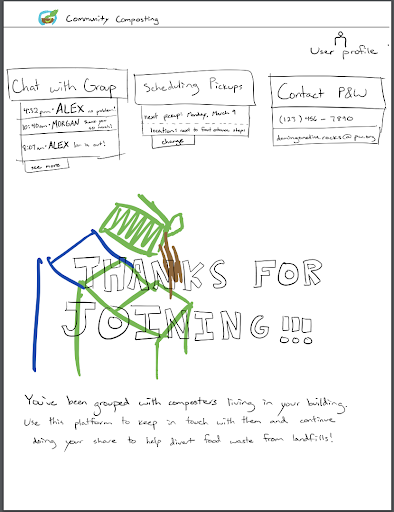 Community Composting
User profile
Chat with Group
4:32 pm • ALEX no problem!
10:40 am • MORGAN thank you
so much!
8:07 am • ALEX I'm in out!
see more
Scheduling Pickups
next pickup: Monday, March 9
location: next to front stoop steps
change
Contact P&W
(127) 456 - 7890
THANKS FOR
JOINING!!!
You've been grouped with composters living in your building.
Use this platform to keep in touch with them and continue
doing your share to help divert food waste from landfills!